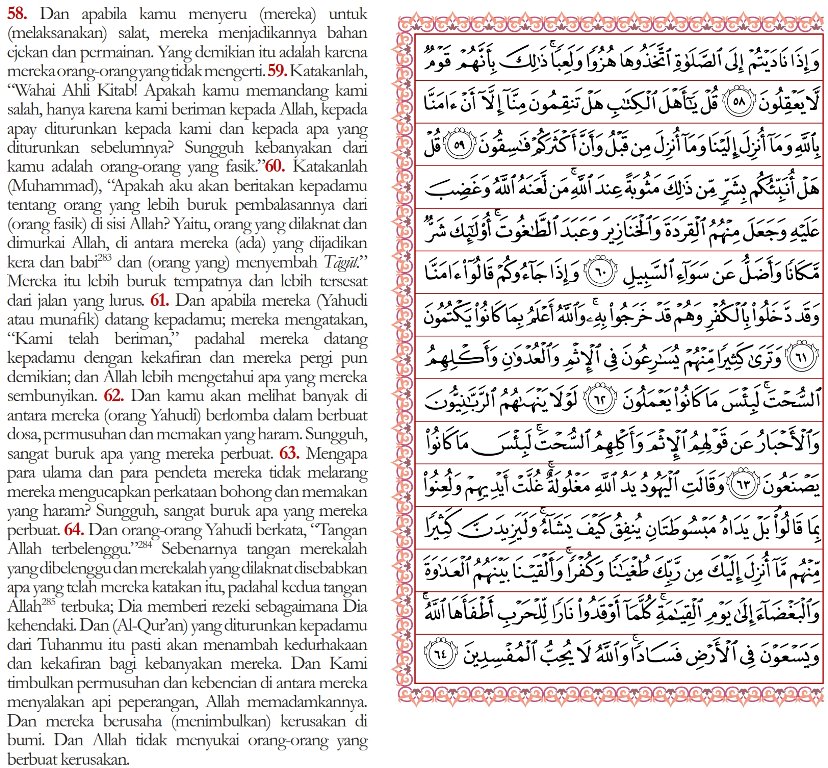 58. Dan apabila kamu menyeru (mereka) untuk
(melaksanakan) salat, mereka menjadikannya bahan
ejekan dan permainan. Yang demikian itu adalah karena
mereka orang-orang yang tidak mengerti. 59. Katakanlah,
“Wahai Ahli Kitab! Apakah kamu memandang kami
salah, hanya karena kami beriman kepada Allah, kepada
apay diturunkan kepada kami dan kepada apa yang
diturunkan sebelumnya? Sungguh kebanyakan dari
kamu adalah orang-orang yang fasik.”60. Katakanlah
(Muhammad), “Apakah aku akan beritakan kepadamu
tentang orang yang lebih buruk pembalasannya dari
(orang fasik) di sisi Allah? Yaitu, orang yang dilaknat dan
dimurkai Allah, di antara mereka (ada) yang dijadikan
kera dan babi²⁸³ dan (orang yang) menyembah Tāgūt.”
Mereka itu lebih buruk tempatnya dan lebih tersesat
dari jalan yang lurus. 61. Dan apabila mereka (Yahudi
atau munafik) datang kepadamu; mereka mengatakan,
“Kami telah beriman,” padahal mereka datang
kepadamu dengan kekafiran dan mereka pergi pun
demikian; dan Allah lebih mengetahui apa yang mereka
sembunyikan. 62. Dan kamu akan melihat banyak di
antara mereka (orang Yahudi) berlomba dalam berbuat
dosa, permusuhan dan memakan yang haram. Sungguh,
sangat buruk apa yang mereka perbuat. 63. Mengapa
para ulama dan para pendeta mereka tidak melarang
mereka mengucapkan perkataan bohong dan memakan
yang haram? Sungguh, sangat buruk apa yang mereka
perbuat. 64. Dan orang-orang Yahudi berkata, “Tangan
Allah terbelenggu.”²⁸⁴ Sebenarnya tangan merekalah
yang dibelenggu dan merekalah yang dilaknat disebabkan
apa yang telah mereka katakan itu, padahal kedua tangan
Allah²⁸⁵ terbuka; Dia memberi rezeki sebagaimana Dia
kehendaki. Dan (Al-Qur’an) yang diturunkan kepadamu
dari Tuhanmu itu pasti akan menambah kedurhakaan
dan kekafiran bagi kebanyakan mereka. Dan Kami
timbulkan permusuhan dan kebencian di antara mereka
menyalakan api peperangan, Allah memadamkannya.
Dan mereka berusaha (menimbulkan) kerusakan di
bumi. Dan Allah tidak menyukai orang-orang yang
berbuat kerusakan.
وَإِذَا نَادَيْتُمْ إِلَى ٱلصَّلَوٰةِ ٱتَّخَذُوهَا هُزُوًا وَلَعِبًا ۚ ذَٰلِكَ بِأَنَّهُمْ قَوْمٌ
لَّا يَعْقِلُونَ ٥٨ قُلْ يَٰٓأَهْلَ ٱلْكِتَٰبِ هَلْ تَنقِمُونَ مِنَّآ إِلَّآ أَنْ ءَامَنَّا
بِٱللَّهِ وَمَآ أُنزِلَ إِلَيْنَا وَمَآ أُنزِلَ مِن قَبْلُ وَأَنَّ أَكْثَرَكُمْ فَٰسِقُونَ ٥٩ قُلْ
هَلْ أُنَبِّئُكُم بِشَرٍّ مِّن ذَٰلِكَ مَثُوبَةً عِندَ ٱللَّهِ ۚ مَن لَّعَنَهُ ٱللَّهُ وَغَضِبَ
عَلَيْهِ وَجَعَلَ مِنْهُمُ ٱلْقِرَدَةَ وَٱلْخَنَازِيرَ وَعَبَدَ ٱلطَّٰغُوتَ ۚ أُو۟لَٰٓئِكَ شَرٌّ
مَّكَانًا وَأَضَلُّ عَن سَوَآءِ ٱلسَّبِيلِ ٦٠ وَإِذَا جَآءُوكُمْ قَالُوٓا۟ ءَامَنَّا
وَقَد دَّخَلُوا۟ بِٱلْكُفْرِ وَهُمْ قَدْ خَرَجُوا۟ بِهِۦ ۚ وَٱللَّهُ أَعْلَمُ بِمَا كَانُوا۟ يَكْتُمُونَ
٦١ وَتَرَىٰ كَثِيرًا مِّنْهُمْ يُسَٰرِعُونَ فِى ٱلْإِثْمِ وَٱلْعُدْوَٰنِ وَأَكْلِهِمُ
ٱلسُّحْتَ ۚ لَبِئْسَ مَا كَانُوا۟ يَعْمَلُونَ ٦٢ لَوْلَا يَنْهَىٰهُمُ ٱلرَّبَّٰنِيُّونَ
وَٱلْأَحْبَارُ عَن قَوْلِهِمُ ٱلْإِثْمَ وَأَكْلِهِمُ ٱلسُّحْتَ ۚ لَبِئْسَ مَا كَانُوا۟
يَصْنَعُونَ ٦٣ وَقَالَتِ ٱلْيَهُودُ يَدُ ٱللَّهِ مَغْلُولَةٌ ۚ غُلَّتْ أَيْدِيهِمْ وَلُعِنُوا۟
بِمَا قَالُوا۟ ۘ بَلْ يَدَاهُ مَبْسُوطَتَانِ يُنفِقُ كَيْفَ يَشَآءُ ۚ وَلَيَزِيدَنَّ كَثِيرًا
مِّنْهُم مَّآ أُنزِلَ إِلَيْكَ مِن رَّبِّكَ طُغْيَٰنًا وَكُفْرًا ۚ وَأَلْقَيْنَا بَيْنَهُمُ ٱلْعَدَٰوَةَ
وَٱلْبَغْضَآءَ إِلَىٰ يَوْمِ ٱلْقِيَٰمَةِ ۚ كُلَّمَآ أَوْقَدُوا۟ نَارًا لِّلْحَرْبِ أَطْفَأَهَا ٱللَّهُ ۚ
وَيَسْعَوْنَ فِى ٱلْأَرْضِ فَسَادًا ۚ وَٱللَّهُ لَا يُحِبُّ ٱلْمُفْسِدِينَ ٦٤